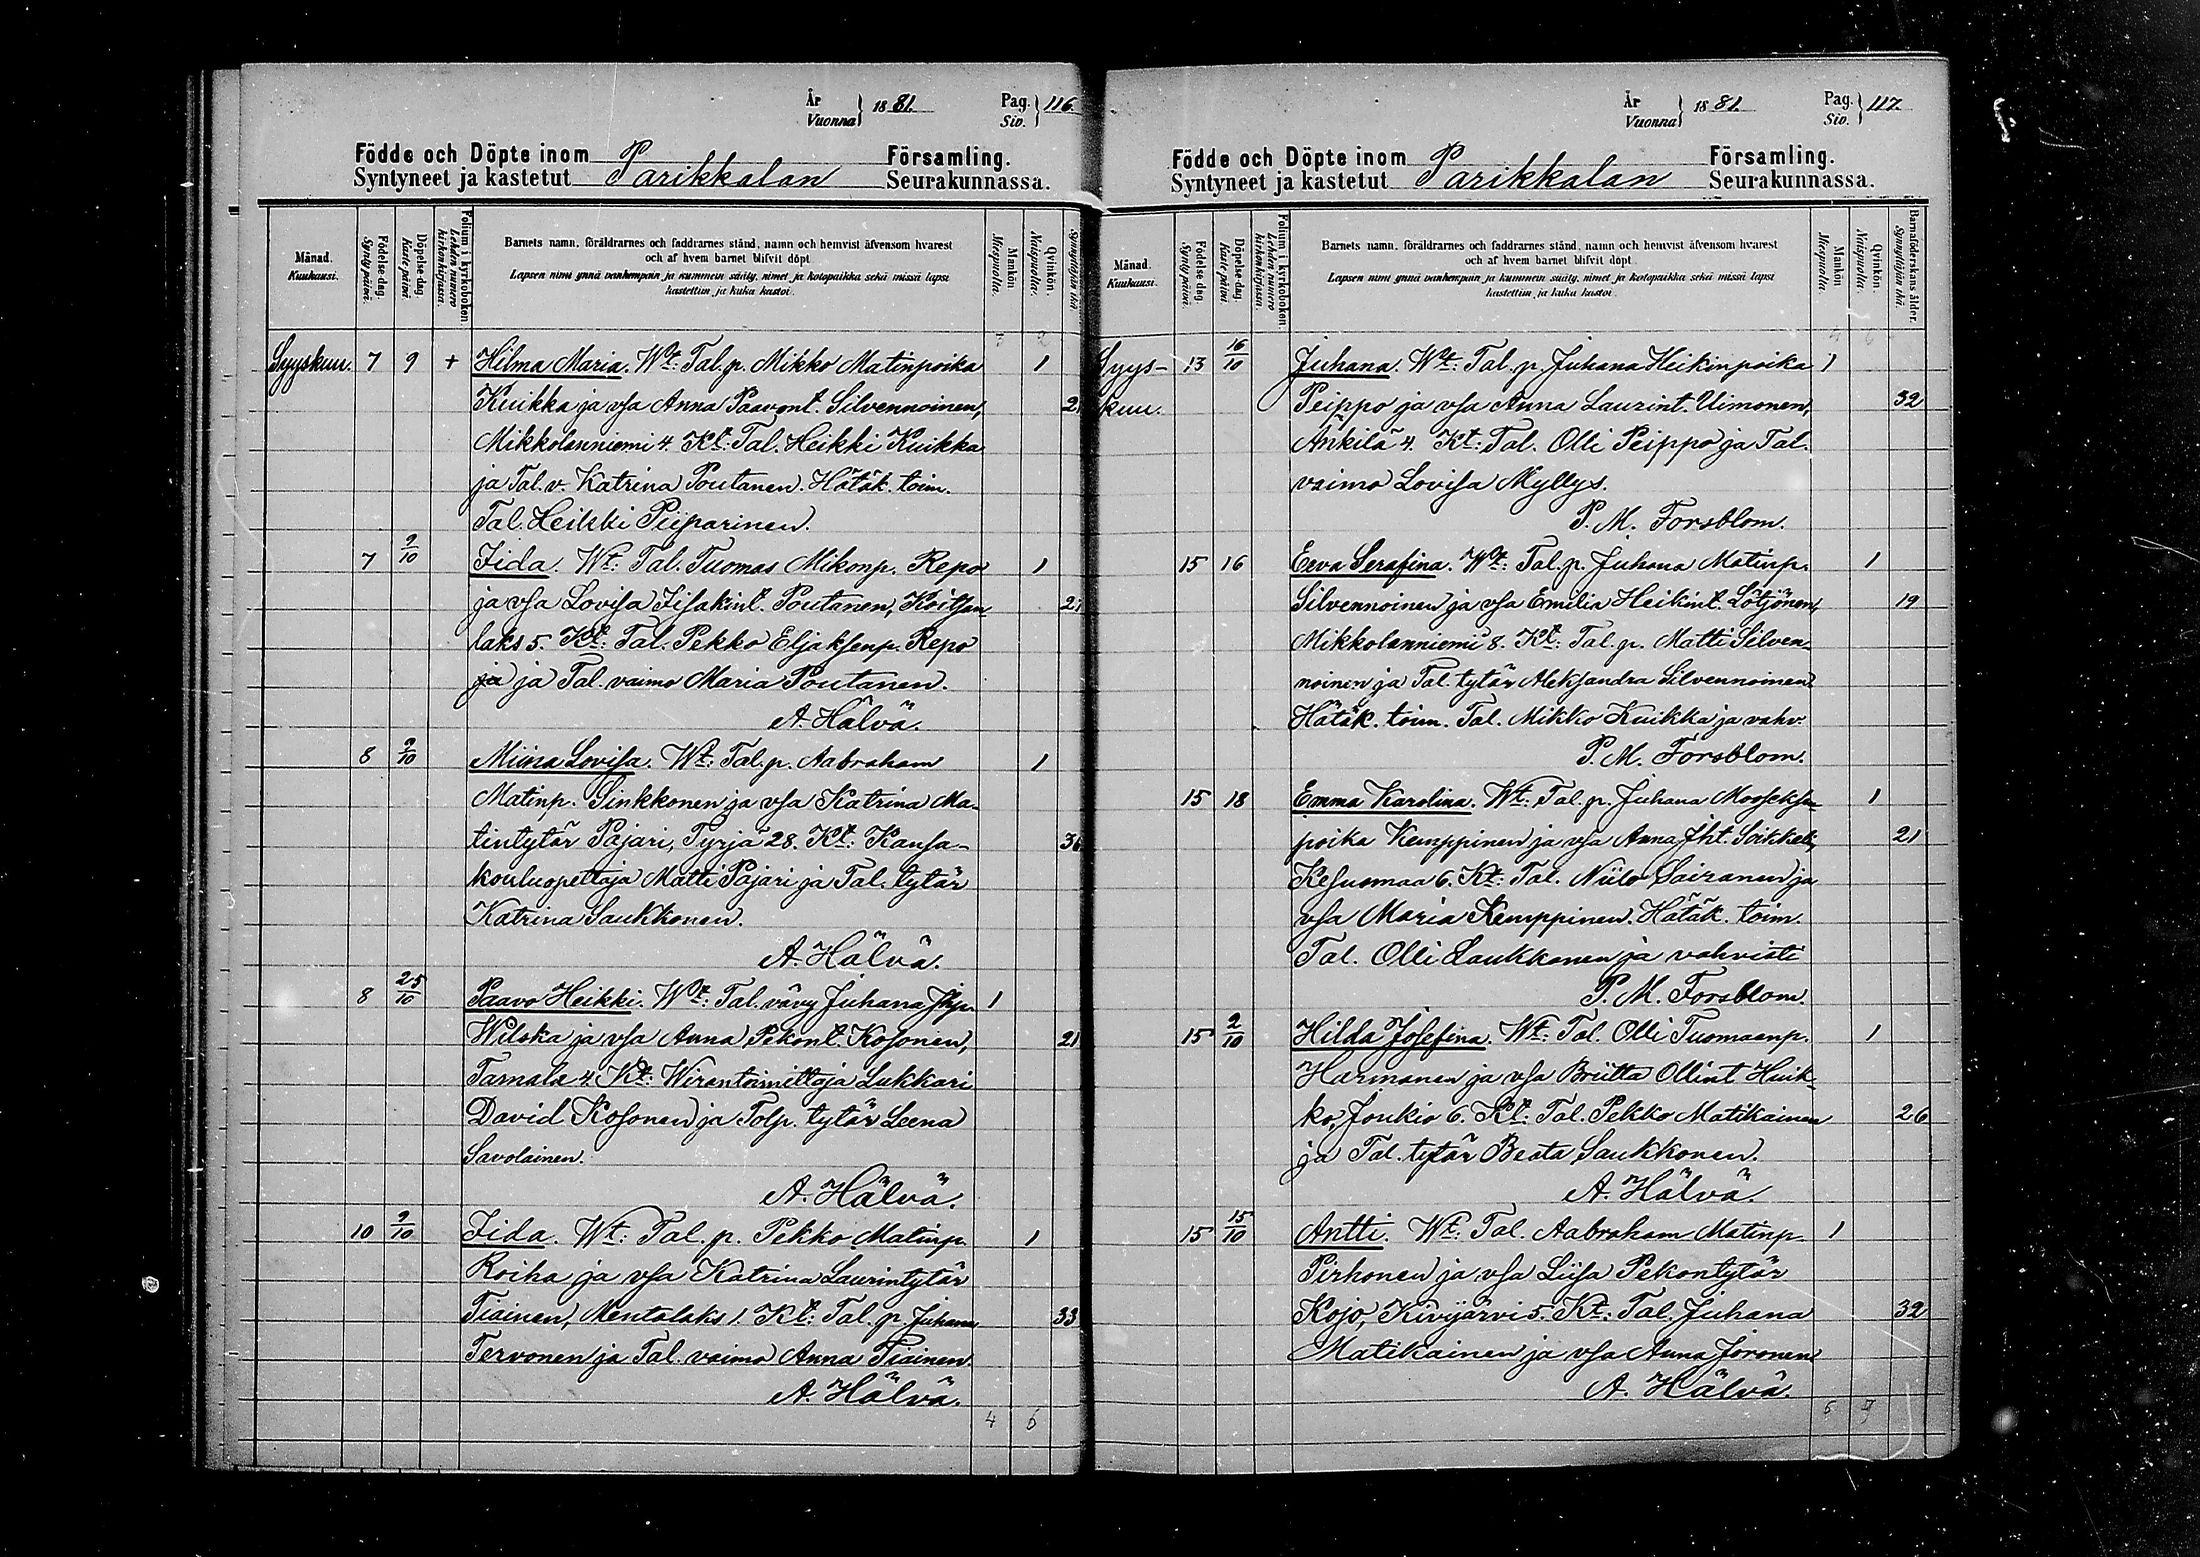 År Vuonna } 1881. Pag. Siv. } 116.
Födde och Döpte inom Parikkalan Församling.
Syntyneet ja kastetut Seurakunnassa.
Månad. Kuukausi. Födelse-dag. Syntypäivä. Döpelse-dag. Kastepäivä. Folium i kyrkoboken. Lehden numero kirkonkirjassa.
Barnets namn, föräldrarnes och faddrarnes stånd, namn och hemvist äfvensom hvarest
och af hvem barnet blifvit döpt.
Lapsen nimi ynnä vanhempain ja kummein sääty, nimet ja kotopaikka sekä missä lapsi
kastettiin ja kuka kastoi.
Mankön. Miespuolia. Qvinkön. Naispuolia. Synnyttäjän ikä.
3 2
Syyskuu. 7 9 + Hilma Maria. Wt: Tal. p. Mikko Matinpoika 1
Kuikka ja vsa Anna Paavont. Silvennoinen, 21
Mikkolanniemi 4. Kt: Tal. Heikki Kuikka
ja Tal. v. Katrina Poutanen. Hätäk. toim.
Tal. Heikki Piiparinen.
7 9/10 Iida. Wt: Tal. Tuomas Mikonp. Repo 1
ja vsa Lovisa Iisakint. Poutanen, Koitsan- 21
laks 5. Kt: Tal. Pekko Eljaksenp. Repo
ja ja Tal. vaimo Maria Poutanen.
A. Hälvä.
8 9/10 Miina Lovisa. Wt: Tal. p. Aabraham 1
Matinp. Sinkkonen ja vsa Katrina Ma-
tintytär Pajari, Tyrjä 28. Kt: Kansa- 36
kouluopettaja Matti Pajari ja Tal. tytär
Katrina Saukkonen.
A. Hälvä.
8 25/10 Paavo Heikki. Wt: Tal. vävy Juhana Jhp. 1
Wilska ja vsa Anna Pekont. Kosonen, 21
Tarnala 4. Kt: Wirantoimittaja Lukkari
David Kosonen ja Tolp. tytär Leena
Savolainen.
A. Hälvä.
10 9/10 Iida. Wt: Tal. p. Pekko Matinp. 1
Roiha ja vsa Katrina Laurintytär
Tiainen, Mentalaks 1. Kt: Tal. p. Juhana 33
Tervonen ja Tal. vaimo Anna Tiainen.
A. Hälvä.
4 6
År Vuonna } 1881. Pag. Siv. } 117.
Födde och Döpte inom Parikkalan Församling.
Syntyneet ja kastetut Seurakunnassa.
Månad. Kuukausi. Födelse-dag. Syntypäivä. Döpelse-dag. Kastepäivä. Folium i kyrkoboken. Lehden numero kirkonkirjassa.
Barnets namn, föräldrarnes och faddrarnes stånd, namn och hemvist äfvensom hvarest
och af hvem barnet blifvit döpt.
Lapsen nimi ynnä vanhempain ja kummein sääty, nimet ja kotopaikka sekä missä lapsi
kastettiin ja kuka kastoi.
Mankön. Miespuolia. Qvinkön. Naispuolia. Barnaföderskans ålder. Synnyttäjän ikä.
4 6
Syys- 13 16/10 Juhana. Wt: Tal. p. Juhana Heikinpoika 1
kuu. Peippo ja vsa Anna Laurint. Uimonen, 32
Ankila 4. Kt: Tal. Olli Peippo ja Tal.
vaimo Lovisa Myllys.
P. M. Forsblom.
15 16 Eeva Serafina. Wt: Tal. p. Juhana Matinp. 1
Silvennoinen ja vsa Emilia Heikint. Lötjönen, 19
Mikkolanniemi 8. Kt: Tal. p. Matti Silven-
noinen ja Tal. tytär Aleksandra Silvennoinen.
Hätäk. toim. Tal. Mikko Kuikka ja vahv.
P. M. Forsblom.
15 18 Emma Karolina. Wt: Tal. p. Juhana Mooseksen- 1
poika Kemppinen ja vsa Anna Jht. Soikkeli, 21
Kesusmaa 6. Kt: Tal. Niilo Sairanen ja
vsa Maria Kemppinen. Hätäk. toim.
Tal. Olli Laukkanen ja vahvisti
P. M. Forsblom.
15 2/10 Hilda Josefina. Wt: Tal. Olli Tuomaanp. 1
Harmanen ja vsa Briitta Ollint. Huik-
ko, Joukio 6. Kt: Tal. Pekko Matikainen 26
ja Tal. tytär Beata Saukkonen.
A. Hälvä.
15 15/10 Antti. Wt: Tal. Aabraham Matinp. 1
Pirhonen ja vsa Liisa Pekontytär
Kojo, Kivijärvi 5. Kt: Tal. Juhana 32
Matikainen ja vsa Anna Joronen.
A. Hälvä.
5 9